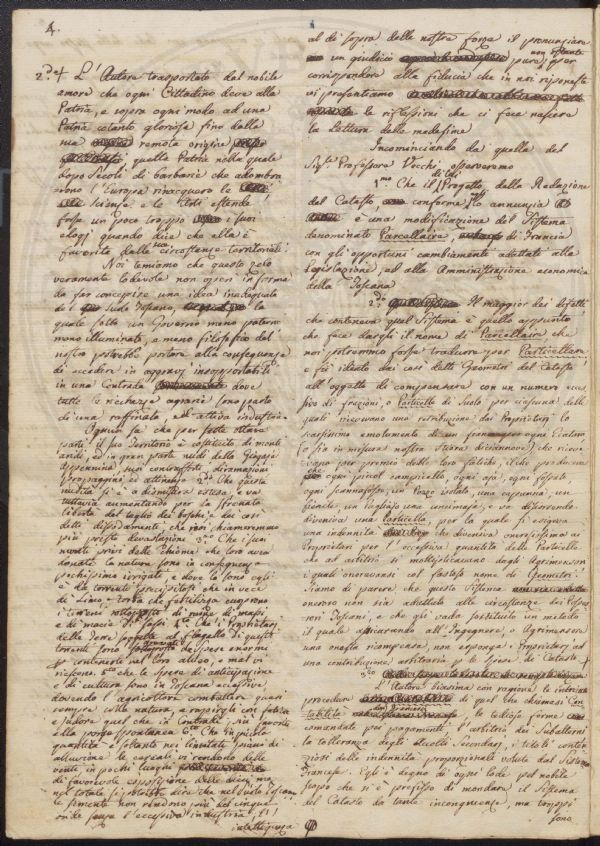 4.
2.do L'Autore trasportato dal nobile
amore che ogni Cittadino deve alla
Patria, e sopra ogni modo ad una
Patria cotanto gloriosa fino dalla
sua remota origine
quella Patria nella quale
dopo Secoli di barbarie che adombra
rono l'Europa rinacquero le
Scienze e le Arti estende
forse un poco troppo i suoi
elogj quando dice che ella è
favorita dalle sue circostanze territoriali.
Noi temiamo che questo zelo
veramente lodevole non operi in forma
da far concepire una idea inadeguata
del Suolo Toscano, la
quale sotto un Governo meno paterno
meno illuminato, o meno filosofico del
nostro potrebbe portare alla conseguenza
di eccedere in aggravj insopportabili
in una Contrada dove
tutte le ricchezze agrarie sono parto
di una raffinata, ed attiva industria.
Ognun sa che per sette ottave
parti il suo Territorio è costituito di monti
aridi, ed in gran parte nudi della Giogaja
Appennina, suoi contrafforti, diramazioni
propaggini ed attinenze 2.do Che questa
nudità si è a dismisura estesa, e va
tuttavia aumentando per la sfrenata
libertà del taglio dei boschi, e dei così
detti dissodamenti, che noi chiameremmo
più presto devastazione 3.o Che i suoi
monti privi delle chiome che loro avea
donate la natura sono in conseguenza
pochissimo irrigati, e dove lo sono egli
è da torrenti precipitosi che in vece
di Limo e torba che fertilizza cuoprono
i terreni sottoposti di rovine di massi
e di macie di sassi 4.o Che i Proprietarj
delle Terre soggette al flagello di questi
torrenti sono sottoposti a spese enormi
per contenerli nel loro alveo, e mal vi
riescono. 5.o che le spese di anticipazione
e di cultura sono in Toscana eccessive
dovendo l'agricoltore combattere quasi
sempre colla natura, e rapirgli con fatica
e sudore quel che in Contrade più favorite
ella porge spontanea 6.o Che in piccola
quantità e soltanto nei limitati piani di
alluvione le cereali vi rendono delle
venti in pochi luoghi
di favorevole esposizione delle dieci, ma
nel totale si potrebbe dire che nel suolo Toscano
le sementi non rendono più del cinque
onde senza l'eccessiva industria, l'
intelligenza
al di sopra delle nostre forze il pronunziare
un giudizio pure non ostante per
corrispondere alla fiducia che in noi riponeste
vi presentiamo
le riflessioni che ci fece nascere
la Lettura delle medesime
Incominciando da quella del
Sig.r Professore Vecchj osserveremo
1.mo Che il di lui Progetto della Redazione
del Catasto conforme Egli annunzia
è una modificazione del Sistema
denominato Parcellaire, di Francia
con gli opportuni cambiamenti adattati alla
Legislazione, ed alla Amministrazione economica
della Toscana
2.do Il maggior dei difetti
che conteneva quel Sistema è quello appunto
che fece dargli il nome di Parcellaire che
noi potremmo forse tradurre per Particellare
e fu ideato dai così detti Geometri del Catasto
all'oggetto di compensare con un numero ecces
sivo di frazioni, o Particelle di Suolo per ciascuna delle
quali ricevevano una retribuzione dai Proprietarj lo
scarsissimo emolumento di un franco per ogni Ectaro
(o sia in misura nostra Stiora diciannove) che riceve
vano per premio delle loro fatiche, il che produceva
che ogni piccol campicello, ogni aja, ogni fossato
ogni scannafosso, un pozzo isolato, una capanna, un
fienile, un pagliajo una concimaja, e va discorrendo
diveniva una Particella, per la quale si esigeva
una indennità che diveniva onerosissima ai
Proprietarj per l'eccessiva quantità delle Particelle
che ad arbitrio si moltiplicavano dagli Agrimensori
i quali onoravansi col fastoso nome di Geometri.
Siamo di parere che questo Sistema
oneroso non sia adattato alle circostanze dei Posses
sori Toscani, e che gli vada sostituito un metodo
il quale assicurando all'Ingegnere, o Agrimensore
una onesta ricompensa, non esponga i Proprietarj ad
una contribuzione arbitraria per le Spese di Catasto
L'Autore biasima con ragione le intricate
procedure di quel che chiamasi Con
tabilità dei Francesi, le tediose forme
comandate per pagamenti, l'arbitrio dei Subalterni
la tolleranza degli ascolti Secondarj, i titoli conten
ziosi delle indennità proporzionali volute dal Sistema
Francese. Egli è degno di ogni lode pel nobile
scopo che si è prefisso di mondare il Sistema
del Catasto da tante incongruenze, ma troppi
sono